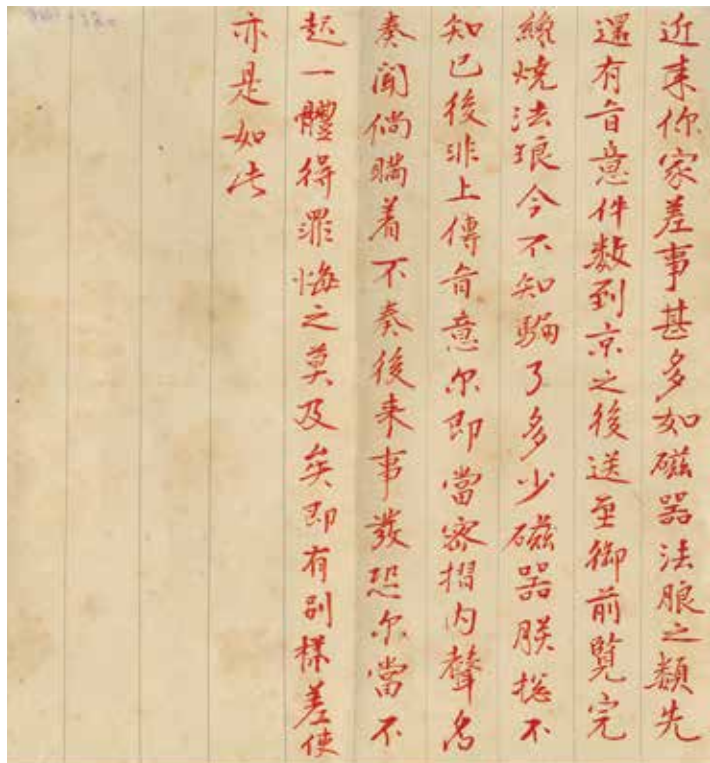 近来你家差事甚多如磁器法琅之類先
還有旨意件数到京之後送至御前覽完
纔燒法琅今不知騙了多少磁器朕捴不
知已後非上傳旨意尔即當密摺內聲名
奏聞倘瞞着不奏後来事發恐尔當不
起一體得罪悔之莫及矣即有別樣差使
亦是如此